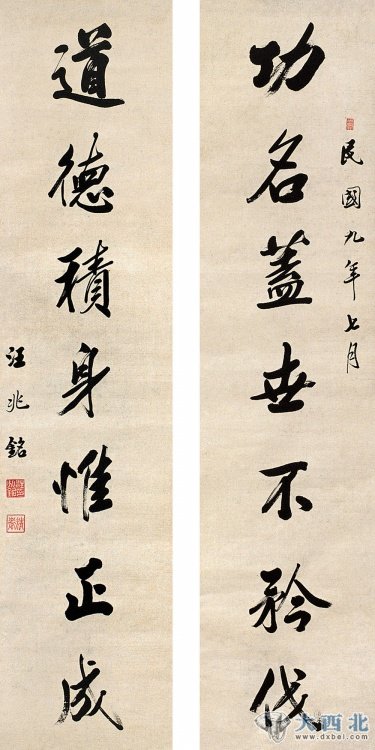 民國九年七月
功名蓋世不矜伐
道德積身惟正成
汪兆銘
大西北
www.dxbei.com